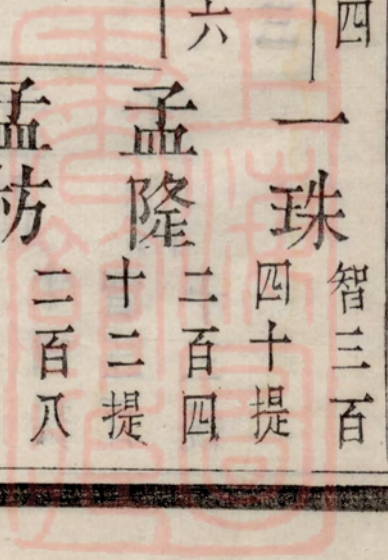 四
一珠
智三百
四十提
六
孟隆
二百四
十二提
孟枋
二百八